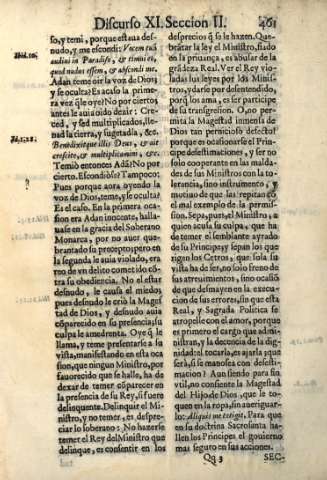 Discurso XI. Seccion II. 461
so, y temi, porque estaua des-
nudo, y me escondi: Vocem tuã
audiui in Paradiso, & timui eò,
quod nudus essem, & abscondi me.
Adan teme oir la voz de Dios;
y se oculta? Es acaso la prime-
ra vez q̃ le oye? No por cierto,
antes le auia oido dezir: Cre-
ced, y sed multiplicados, lle-
nad la tierra, y sugetadla, &c.
Benedixitque illis Deus, & ait
crescite, & multiplicamini, &c.
Temiò entonces Adã? No por
cierto. Escondiòse? Tampoco:
Pues porque aora oyendo la
voz de Dios, teme, y se oculta?
Es el caso. En la primera oca-
sion era Adan inocente, halla-
uase en la gracia del Soberano
Monarca, por no auer que-
brantado su precepto; pero en
la segunda le auia violado, era
reo de vn delito cometido cõ-
tra su obediencia. No el estar
desnudo, le causa el miedo,
pues desnudo le criò la Mages-
tad de Dios, y desnudo auia
cõparecido en su presencia; su
culpa le amedrenta. Oye q̃ le
llama, y teme presentarse a su
vista, manifestando en esta oca-
sion, que ningun Ministro, por
fauorecido que se halle, ha de
dexar de temer cõparecer en
la presencia de su Rey, si fuere
delinquente. Delinquir el Mi-
nistro, y no temer, es despre-
ciar lo soberano: No hazerse
temer el Rey del Ministro que
delinque, es consentir en los
desprecios q̃ se le hazen. Que-
brãtar la ley el Ministro, fiado
en la priuança, es abusar de la
grãdeza Real. Ver el Rey vio-
ladas sus leyes por los Minis-
tros, y darse por desentendido,
porq̃ los ama, es ser participe
de su transgression. O, no per-
mita la Magestad inmensa de
Dios tan pernicioso defecto!
porque es ocasionarse el Prin-
cipe desestimaciones, y ser no
solo cooperante en las malda-
des de sus Ministros con la to-
lerancia, sino instrumento, y
motiuo de que las repitan cõ
el mal exemplo de la permis-
sion. Sepa, pues, el Ministro, a
quien acusa su culpa, que ha
de temer el semblante ayrado
de su Principe; y sepan los que
rigen los Cetros, que sola su
vista ha de ser, no solo freno de
las atreuimientos, sino ocasiõ
de que desmayen en la execu-
cion de sus errores, sin que esta
Real, y Sagrada Politica se
atropelle con el amor, porque
es primero el cargo que admi-
nistran, y la decencia de la dig-
nidad; el tocarla, es ajarla; que
serà, si se manosea con desesti-
macion? Aun siendo para fin
vtil, no consiente la Magestad
del Hijo de Dios, que le to-
quen en la ropa, sin aueriguar-
lo: Aliquis me tetigit. Para que
en su doctrina Sacrosanta ha-
llen los Principes el gouierno
mas seguro en sus acciones.
Qq 3 SEC-